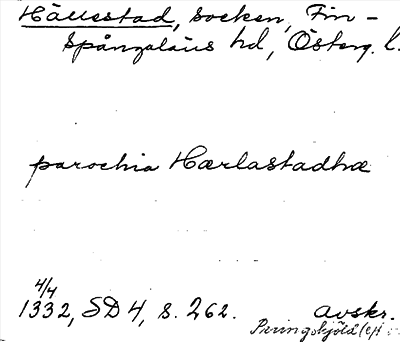 Hällestad, socken, Fin-
spångaläns hd, Österg. l.
parochia Hærlastadhæ
4/4
1332, SD 4, s. 262. avskr.
Peringskjöld